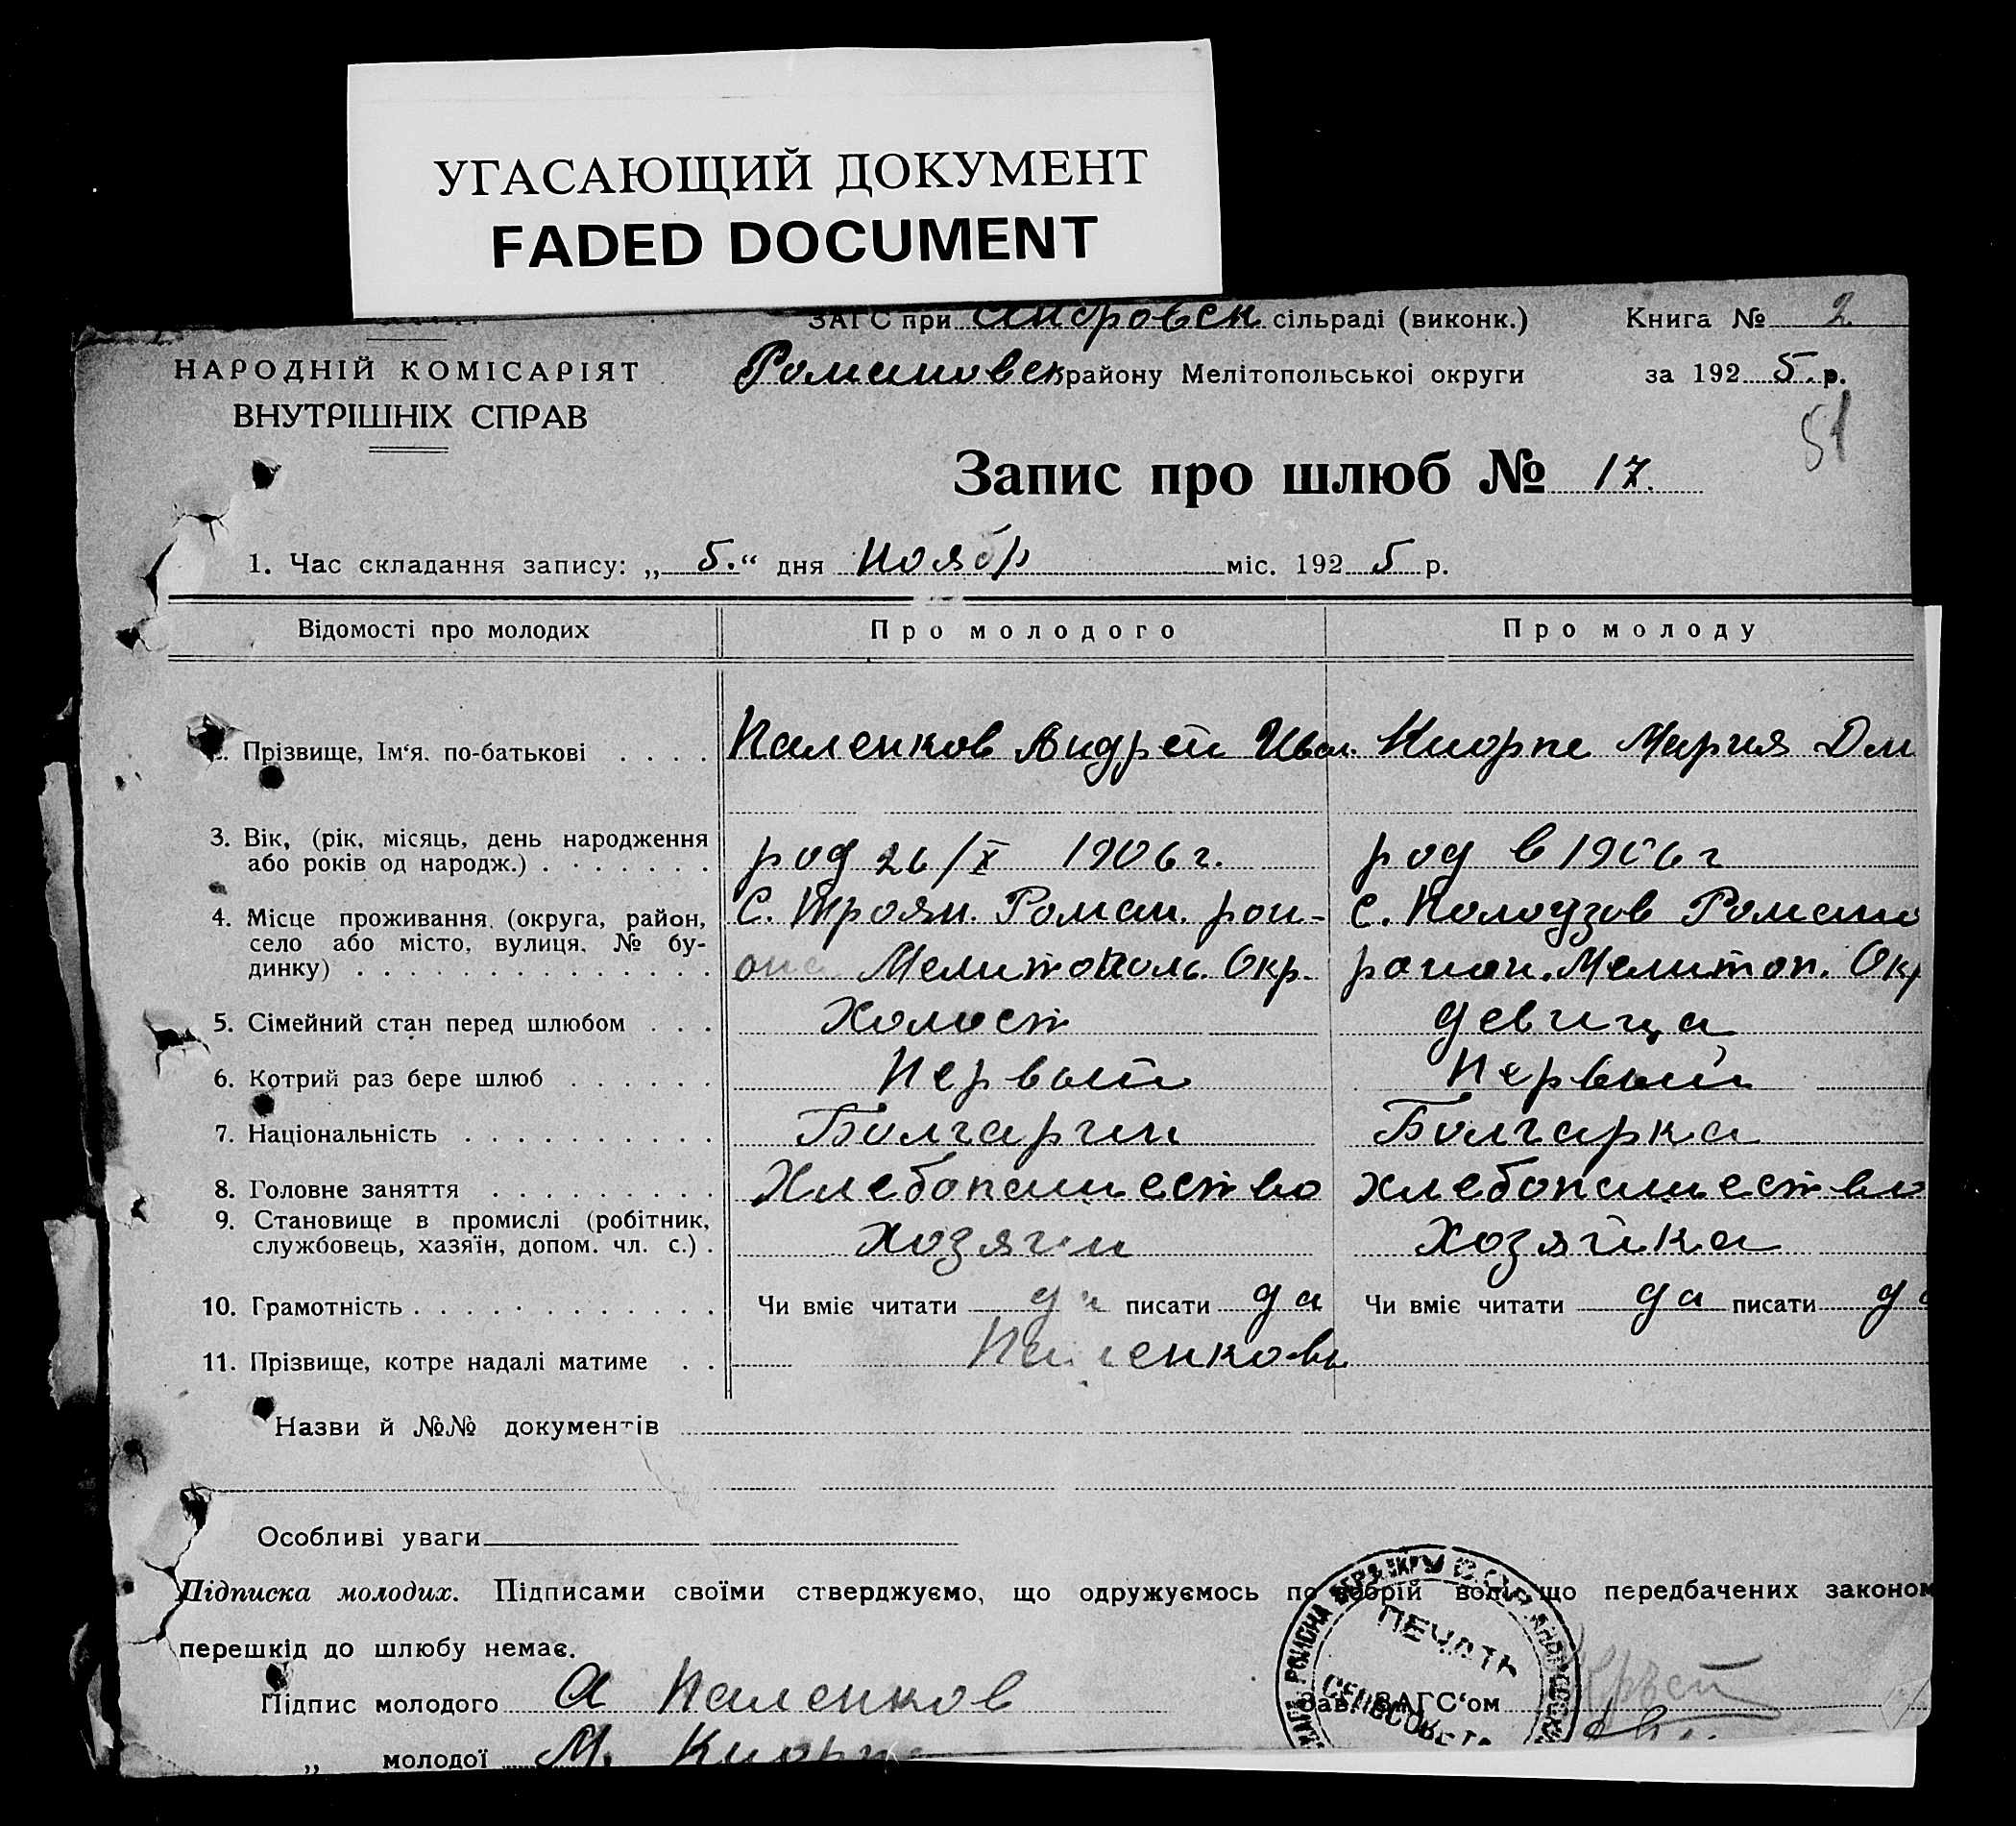 УГАСАЮЩИЙ ДОКУМЕНТ
FADED DOCUMENT
ЗАГС при сільраді (виконк.) Книга № 2
НАРОДНІЙ КОМІСАРІЯТ
Романовск району Мелітопольської округи за 1925 р.
ВНУТРІШНІХ СПРАВ
51
Запис про шлюб № 17.
1. Час складання запису: „5.“ дняНоябр міс. 1925 р.
Відомості про молодих Про молодого Про молоду
Прізвище, Ім‘я. по-батькові . . . . Паленков Андрей Иван. Киорпе Мария Дм
3. Вік, (рік, місяць, день народження
або років од народж.) . . . . . . . род 26/X 1906 г. род в 1906 г
4. Місце проживання, (округа, район, С. Троян. Роман. рай- с. Романо
село або місто, вулиця, № бу- она Мелитополь. Окр. район. Мелитоп. Окр
динку) . . . . . . . . . . . . . .
5. Сімейний стан перед шлюбом . . . Холост девица
6. Котрий раз бере шлюб . . . . . . Первый Первый
7. Національність . . . . . . . . . . Болгарин Болгарка
8. Головне заняття . . . . . . . . . Хлебопашество хлебопашество
9. Становище в промислі (робітник,
службовець, хазяїн, допом. чл. с.) . Хозяин Хозяйка
10. Грамотність . . . . . . . . . . . . Чи вміє читати да писати да Чи вміє читати да писати да
11. Прізвище, котре надалі матиме . . Паленковы
Назви й №№ документів
Особливі уваги
Підписка молодих. Підписами своїми стверджуємо, що одружуємось по добрій волі, що передбачених законом
перешкід до шлюбу немає.
ПЕЧАТЬ
СЕЛЬСОВЕТА
Підпис молодого А Паленков Зав. ЗАГС‘ом
„ молодої М. Киорпе